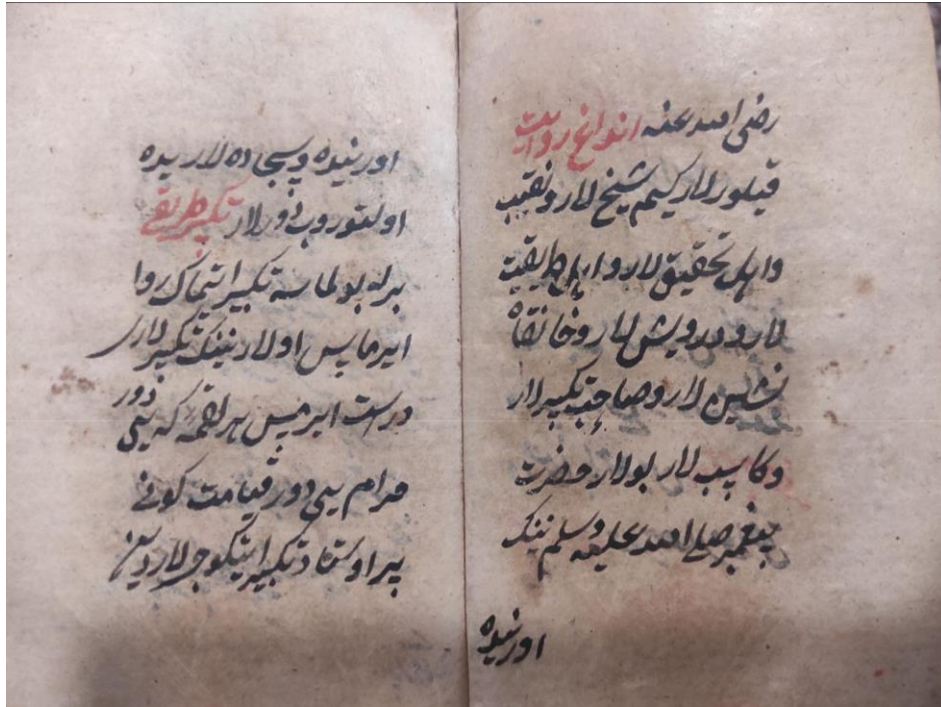 رضی الله عنه انداغ روایت
قیلورلار کیم شیخ لار و نقیب
و اهل تحقیق لار و اهل طریقت
لار و درویش لار و خانقاه
نشین لار و صاحب تکبیر لار
و کاسب لار بولار حضرت
پیغمبر صلی الله علیه و سلم ننک
اورنیده
اورنیده و سجاده لاریده
اولتوروب دورلار تکبیر طریقی
برله بولماسه تکبیر ایتماک روا
ایرماس اولارننک تکبیرلاری
درست ایرمس هر لقمه که ییی دور
حرام ییی دور قیامت کونی
پیر اوستاد تکبیر ایتکوجی لاردین